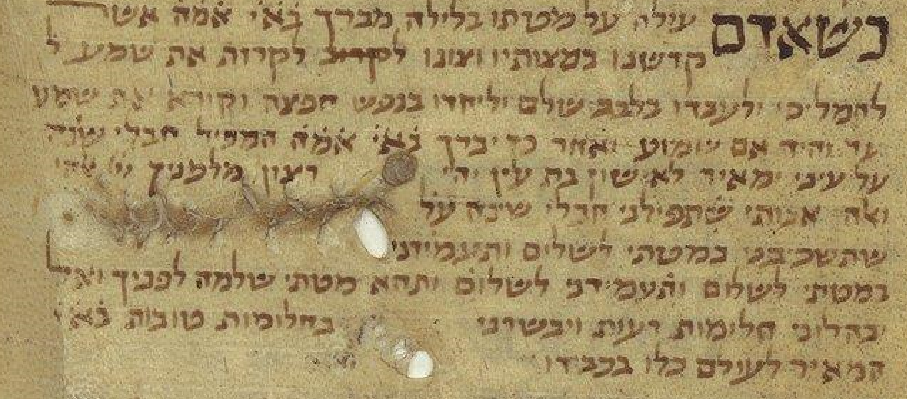 כשאדם עולה על מטתו בלילה מברך בא״י אמ״ה אשר
קדשנו במצותיו וצונו לקרות את שמע
להמליכו ולעבדו בלבב שלם וליחדו בנפש חפצה וקורא את שמע
עד והיה אם שמוע ואחר כך יברך בא״י אמ״ה המפיל חבלי שינה
על עיני ומאיר לאישון בת עין יהי רצון מלפניך
אבותי שתפילני חבלי שינה על
שתשכיבני במטתי לשלום ותעמידני
במטתי לשלום ותעמידני לשלום ותהא מטתי שלמה לפניך ואל
יבהלוני חלומות רעות ויבשרני בחלומות טובות בא״י
המאיר לעולם כלו בכבודו